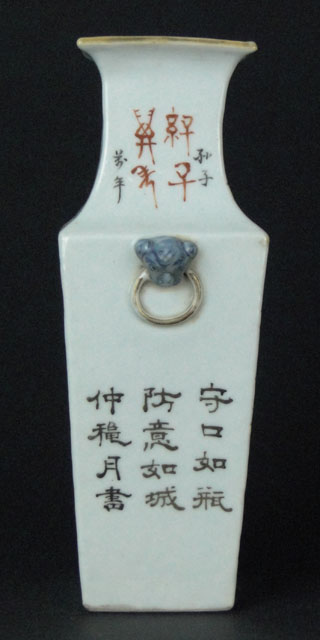 孙子
萬年
守口如瓶
防意如城
仲穐月書